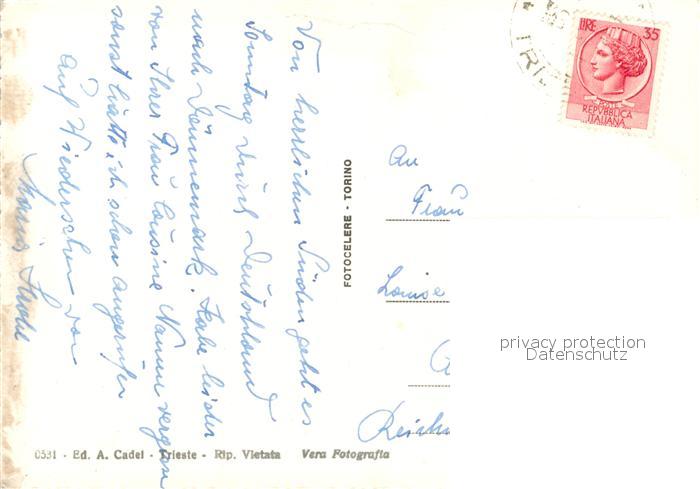 Vom herrlichen Süden geht es
Sonntag durch Deutschland
nach Dänemark. Habe leider
von Ihrer Frau Cousine Namen vergessen
sonst hätte ich schon angerufen
Auf Wiedersehen von
An
Frau
Louise
FOTOCELERE - TORINO
LIRE 35
POSTE
REPVBBLICA
ITALIANA
privacy protection
Datenschutz
0531 - Ed. A. Cadel - Trieste - Rip. Vietata Vera Fotografia